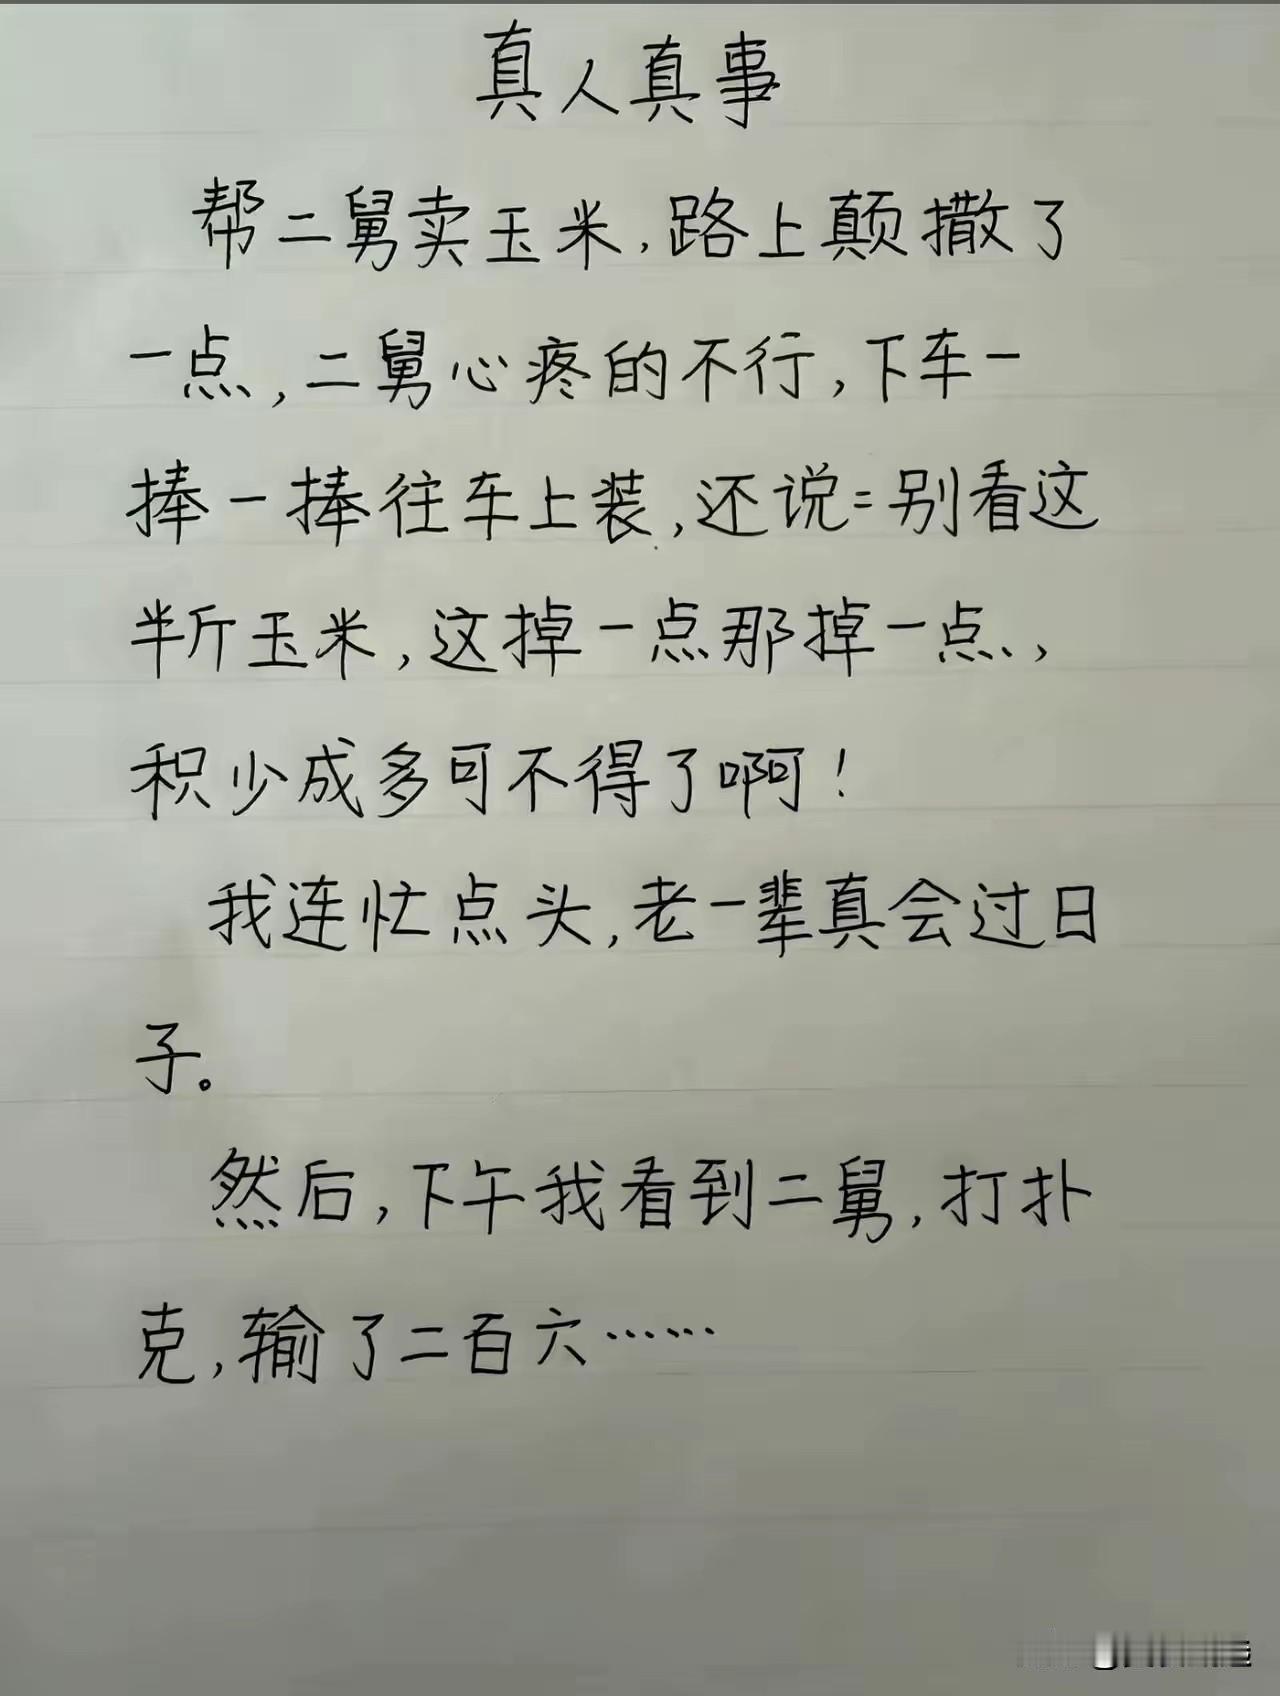 真人真事
帮二舅卖玉米,路上颠撒了
一点,二舅心疼的不行,下车一
捧一捧往车上装,还说=别看这
半斤玉米,这掉一点那掉一点,
积少成多可不得了啊!
我连忙点头,老一辈真会过日
子。
然后,下午我看到二舅,打扑
克,输了二百六……